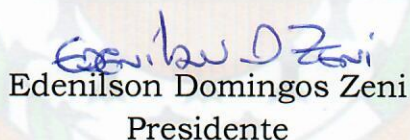 Edenilson D Zeni
Edenilson Domingos Zeni
Presidente